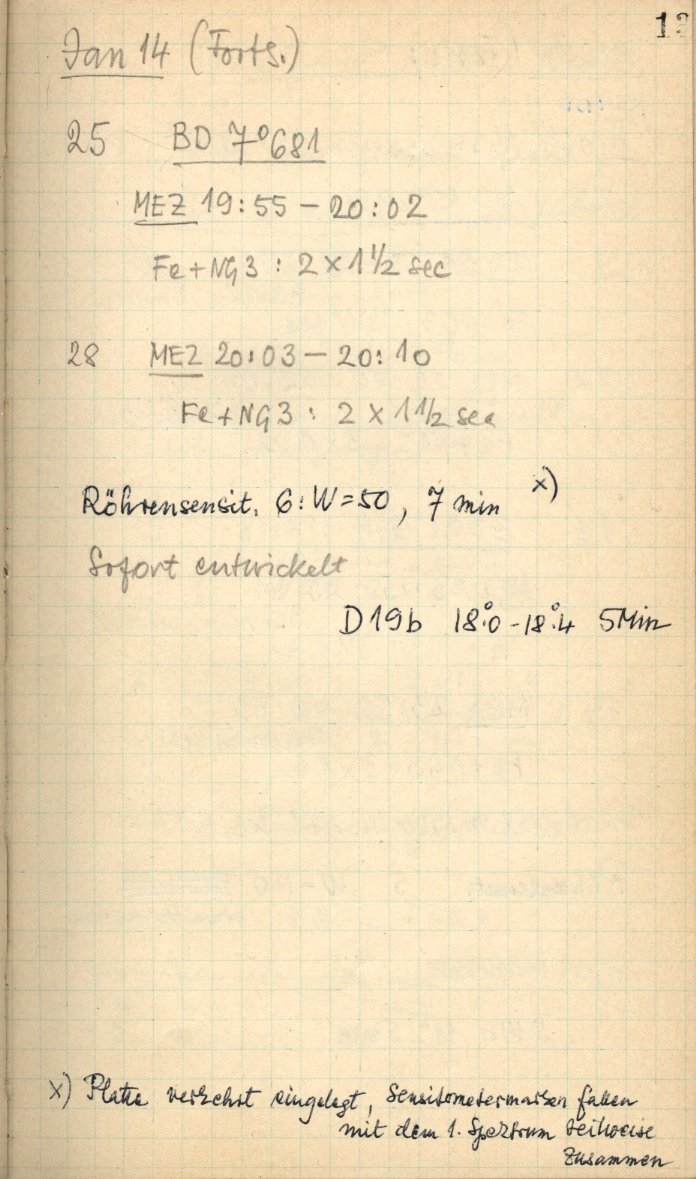 Jan 14 (Forts.)
25 BD 7°681
MEZ 19:55 – 20:02
Fe + NG 3 : 2 × 1 1/2 sec
28 MEZ 20:03 – 20:10
Fe + NG 3 : 2 × 1 1/2 sec
Röhrensensit. 6 : W = 50, 7 min x)
Sofort entwickelt
D 19b 18°.0 - 18°.4 5 Min
x) Platte verkehrt eingelegt, Sensitometermarken fallen
mit dem 1. Spektrum teilweise
zusammen